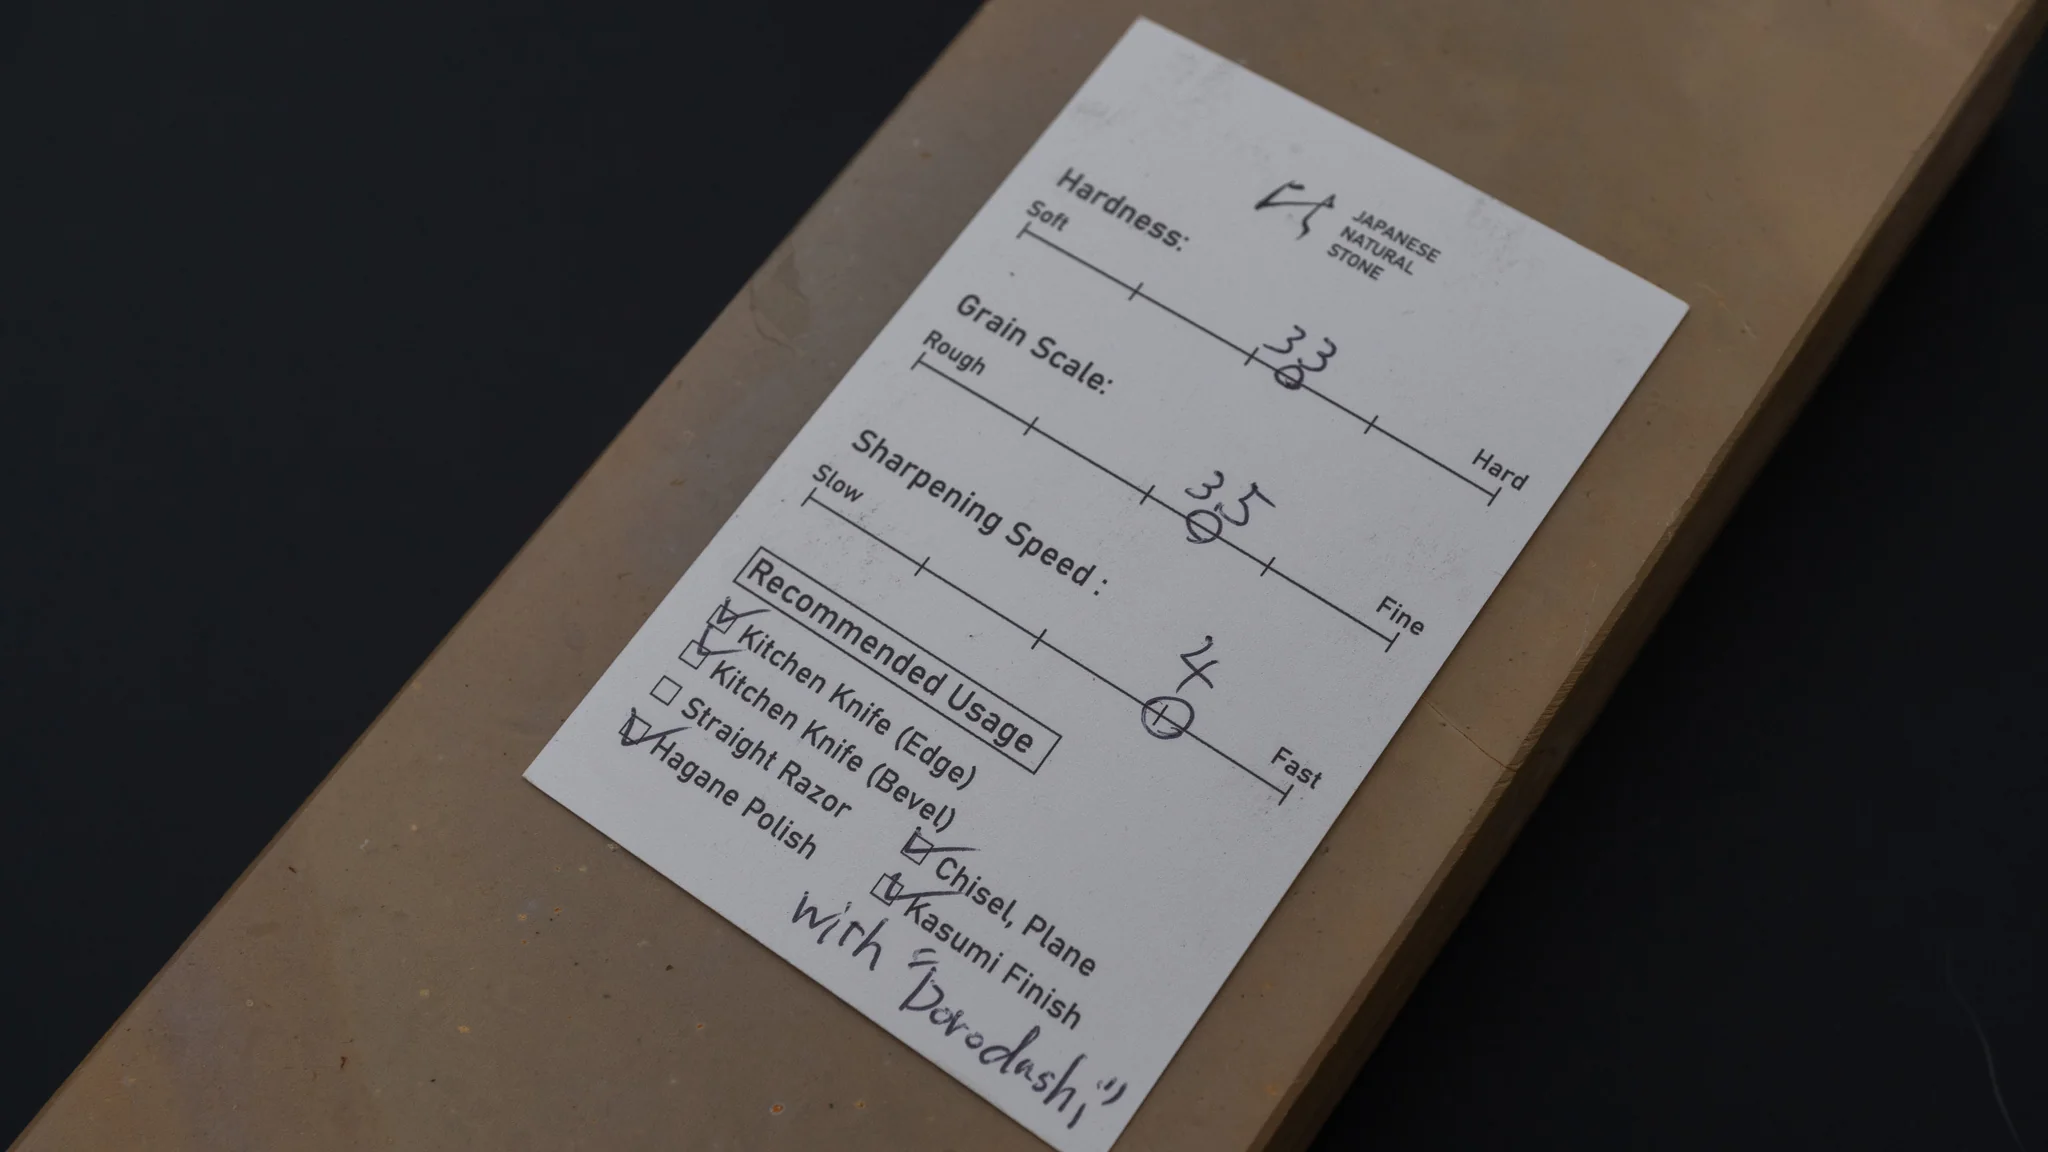 JAPANESE
NATURAL
STONE
Hardness:
Soft
Hard
3.3
Grain Scale:
Rough
Fine
3.5
Sharpening Speed :
Slow
Fast
4
Recommended Usage
Kitchen Knife (Edge)
Kitchen Knife (Bevel)
Straight Razor
Hagane Polish
Chisel, Plane
Kasumi Finish
with "Dorodashi"